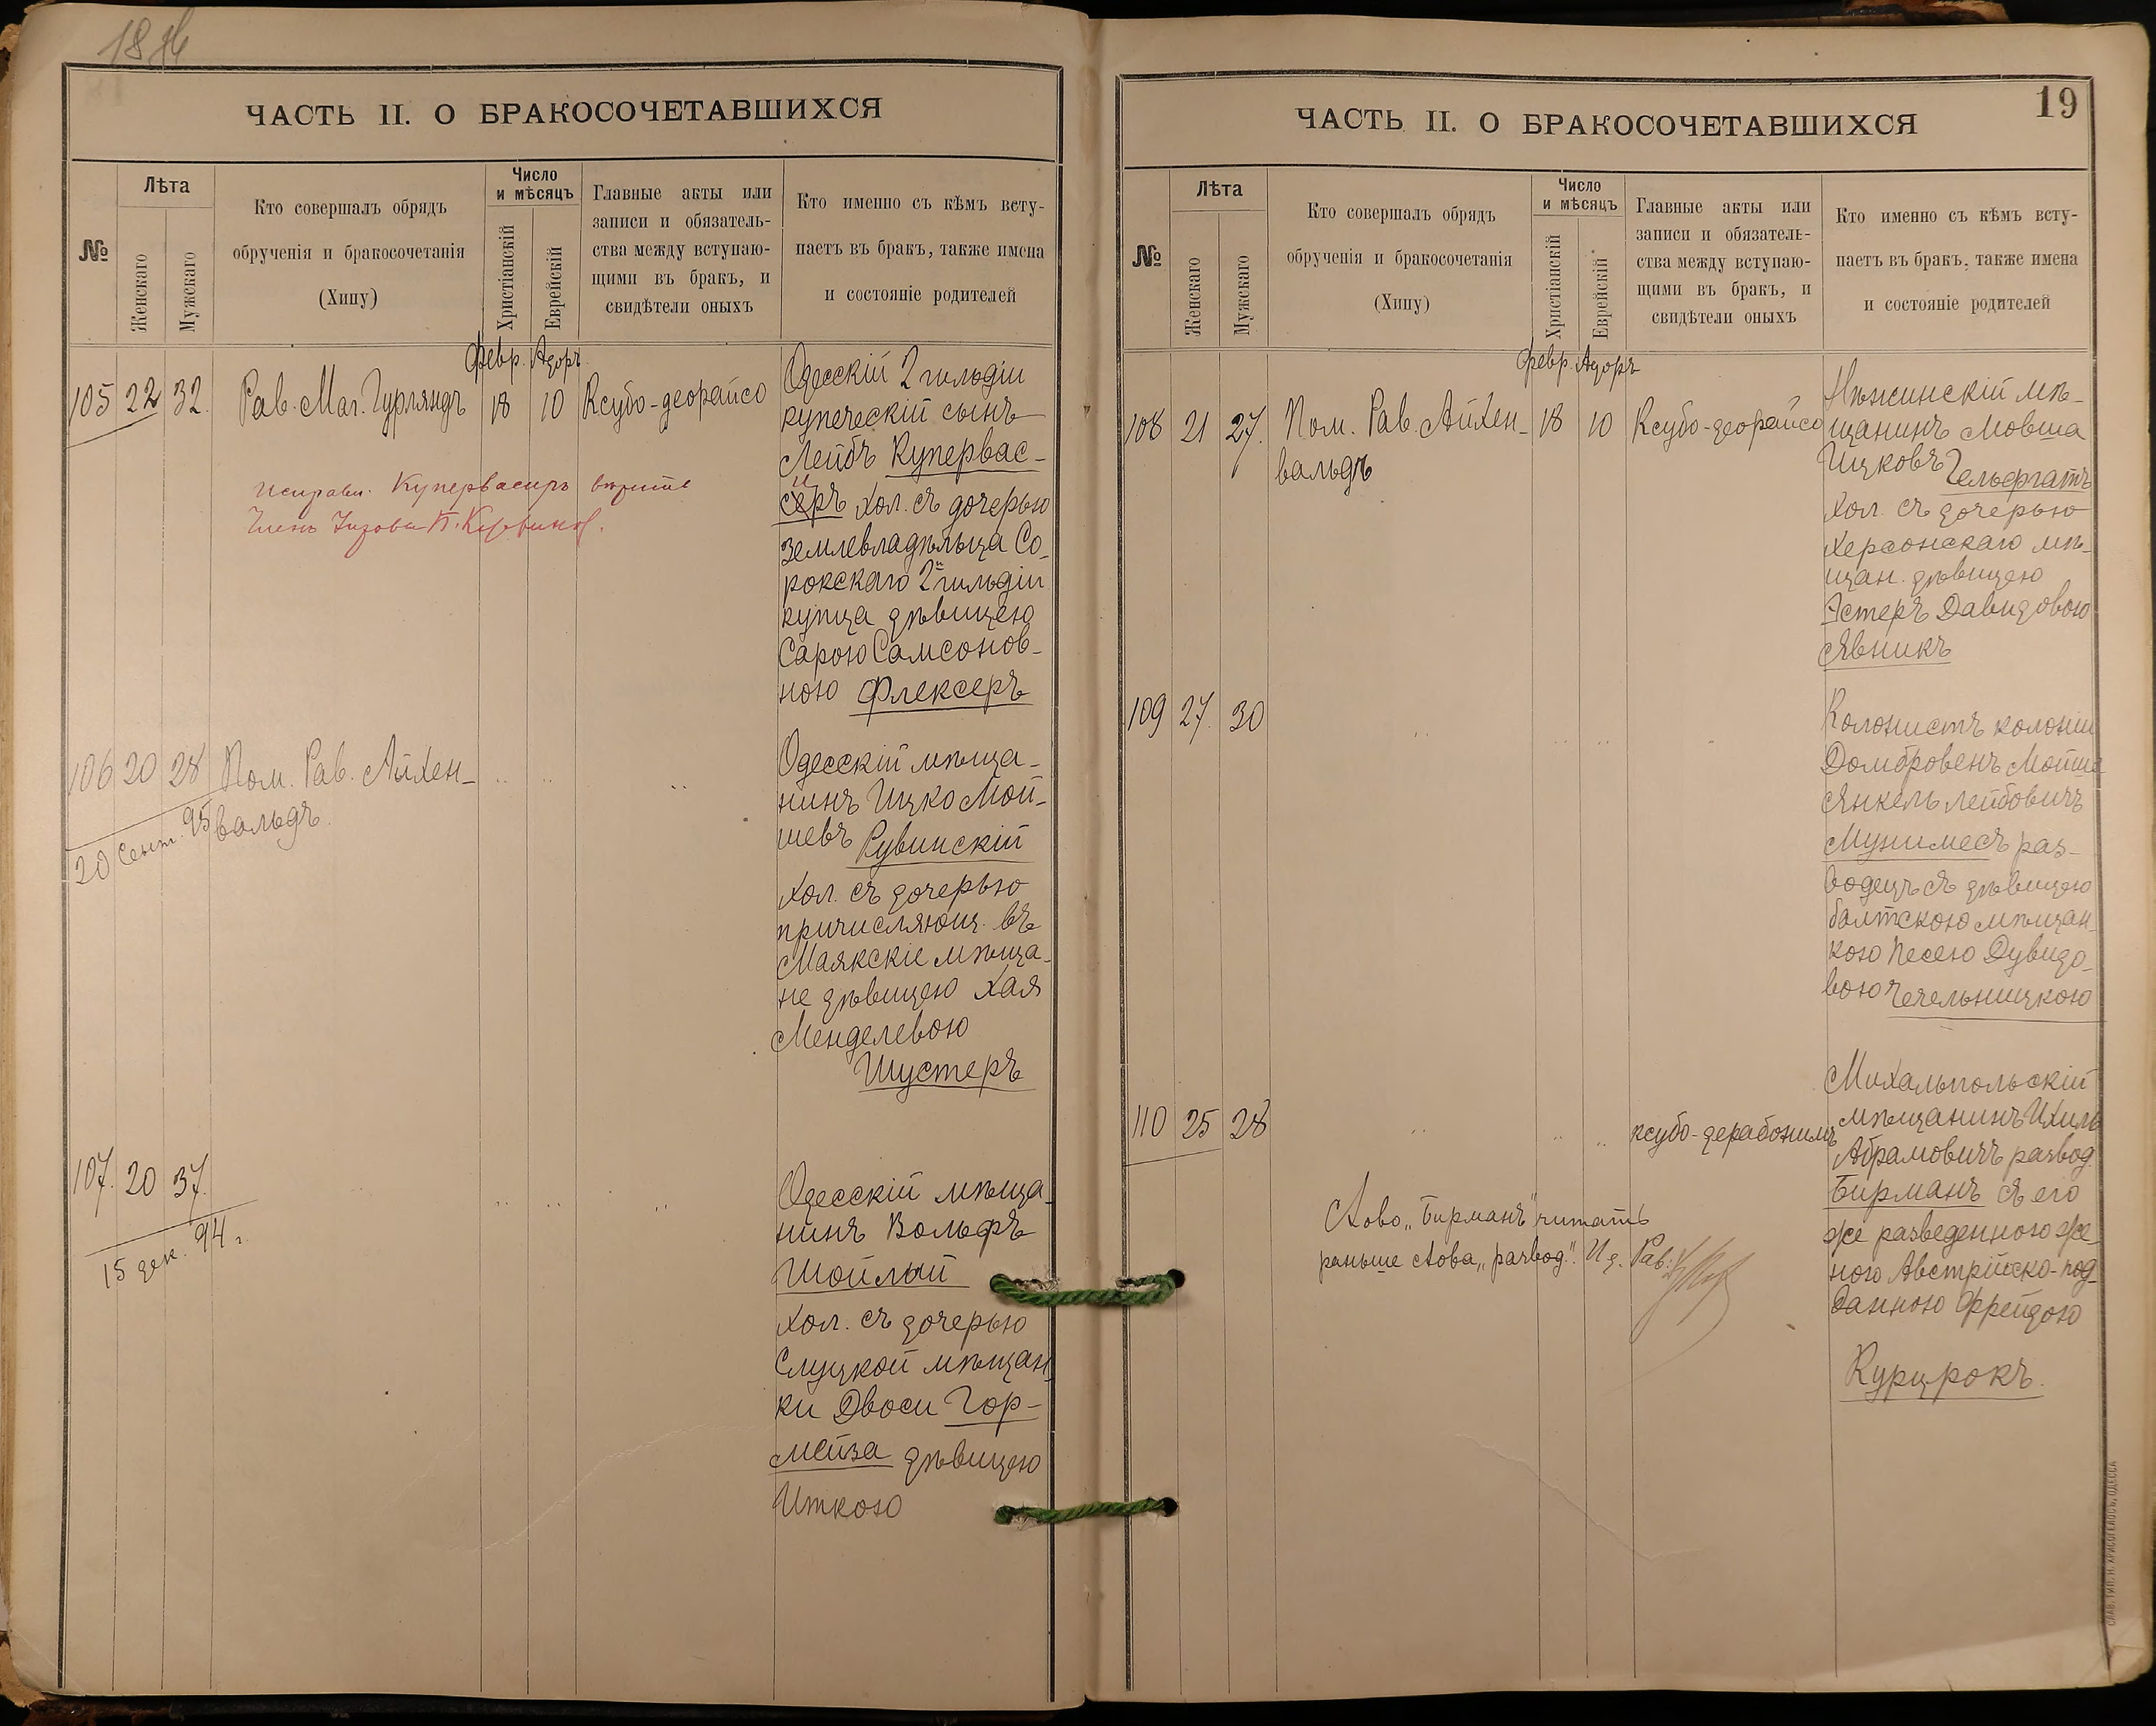 18
ЧАСТЬ II. О БРАКОСОЧЕТАВШИХСЯ
№
Лѣта
Женскаго
Мужскаго
Кто совершалъ обрядъ
обрученія и бракосочетанія
(Хипу)
Число
и мѣсяцъ
Христіанскій
Еврейскій
Главные акты или
записи и обязатель-
ства между вступаю-
щими въ бракъ, и
свидѣтели оныхъ
Кто именно съ кѣмъ всту-
паетъ въ бракъ, также имена
и состояніе родителей
Февр. Адоръ
105 22 32. Рав. Маг. Гурляндъ 18 10 Ксубо-деорайсо
Одесскій 2 гильдіи
купеческій сынъ
Лейбъ Купервас-
серъ хол. съ дочерью
и
землевладѣльца Со-
рокскаго 2й гильдіи
купца дѣвицею
Сарою Самсонов-
ною Флексеръ
Исправл. Купервасиръ вѣрить
Членъ Управы
106 20 28 Пом. Рав. Айхен-
вальдъ
20 Сент. 95
Одесскій мѣща-
нинъ Ицко Мой-
шевъ Рувинскій
хол. съ дочерью
причисляющ. въ
Маякскіе мѣща-
не дѣвицею Хая
Менделевою
Шустеръ
107. 20 37.
15 дек. 94 г.
Одесскій мѣща-
нинъ Вольфъ
Шойлый
хол. съ дочерью
Слуцкой мѣщан-
ки Двоси Гор-
мейза дѣвицею
Иткою
19
ЧАСТЬ II. О БРАКОСОЧЕТАВШИХСЯ
№
Лѣта
Женскаго
Мужскаго
Кто совершалъ обрядъ
обрученія и бракосочетанія
(Хипу)
Число
и мѣсяцъ
Христіанскій
Еврейскій
Главные акты или
записи и обязатель-
ства между вступаю-
щими въ бракъ, и
свидѣтели оныхъ
Кто именно съ кѣмъ всту-
паетъ въ бракъ, также имена
и состояніе родителей
Февр. Адоръ
108 21 27. Пом. Рав. Айхен- 18 10 Ксубо-деорайсо
вальдъ
Нѣжинскій мѣ-
щанинъ Мовша
Ицковъ Гельфгатъ
хол. съ дочерью
Херсонскаго мѣ-
щан. дѣвицею
Эстеръ Давидовою
Явникъ
109 27. 30
Колонистъ колоніи
Домбровенъ Мойше
Янкель Лейбовичъ
Мунимесъ раз-
водецъ съ дѣвицею
балтскою мѣщан-
кою Песею Дувидо-
вою Чечельницкою
110 25 28 ксубо-дерабонимъ
Михальпольскій
мѣщанинъ Ихиль
Абрамовичъ развод.
Бирманъ съ его
же разведенною же-
ною Австрійско-под-
данною Фрейдою
Курцрокъ.
Слово „Бирманъ" читать
раньше слова „развод." И д. Рав.
СЛАВ. ТИП. Н. ХРИСОГЕЛОСЪ, ОДЕССА